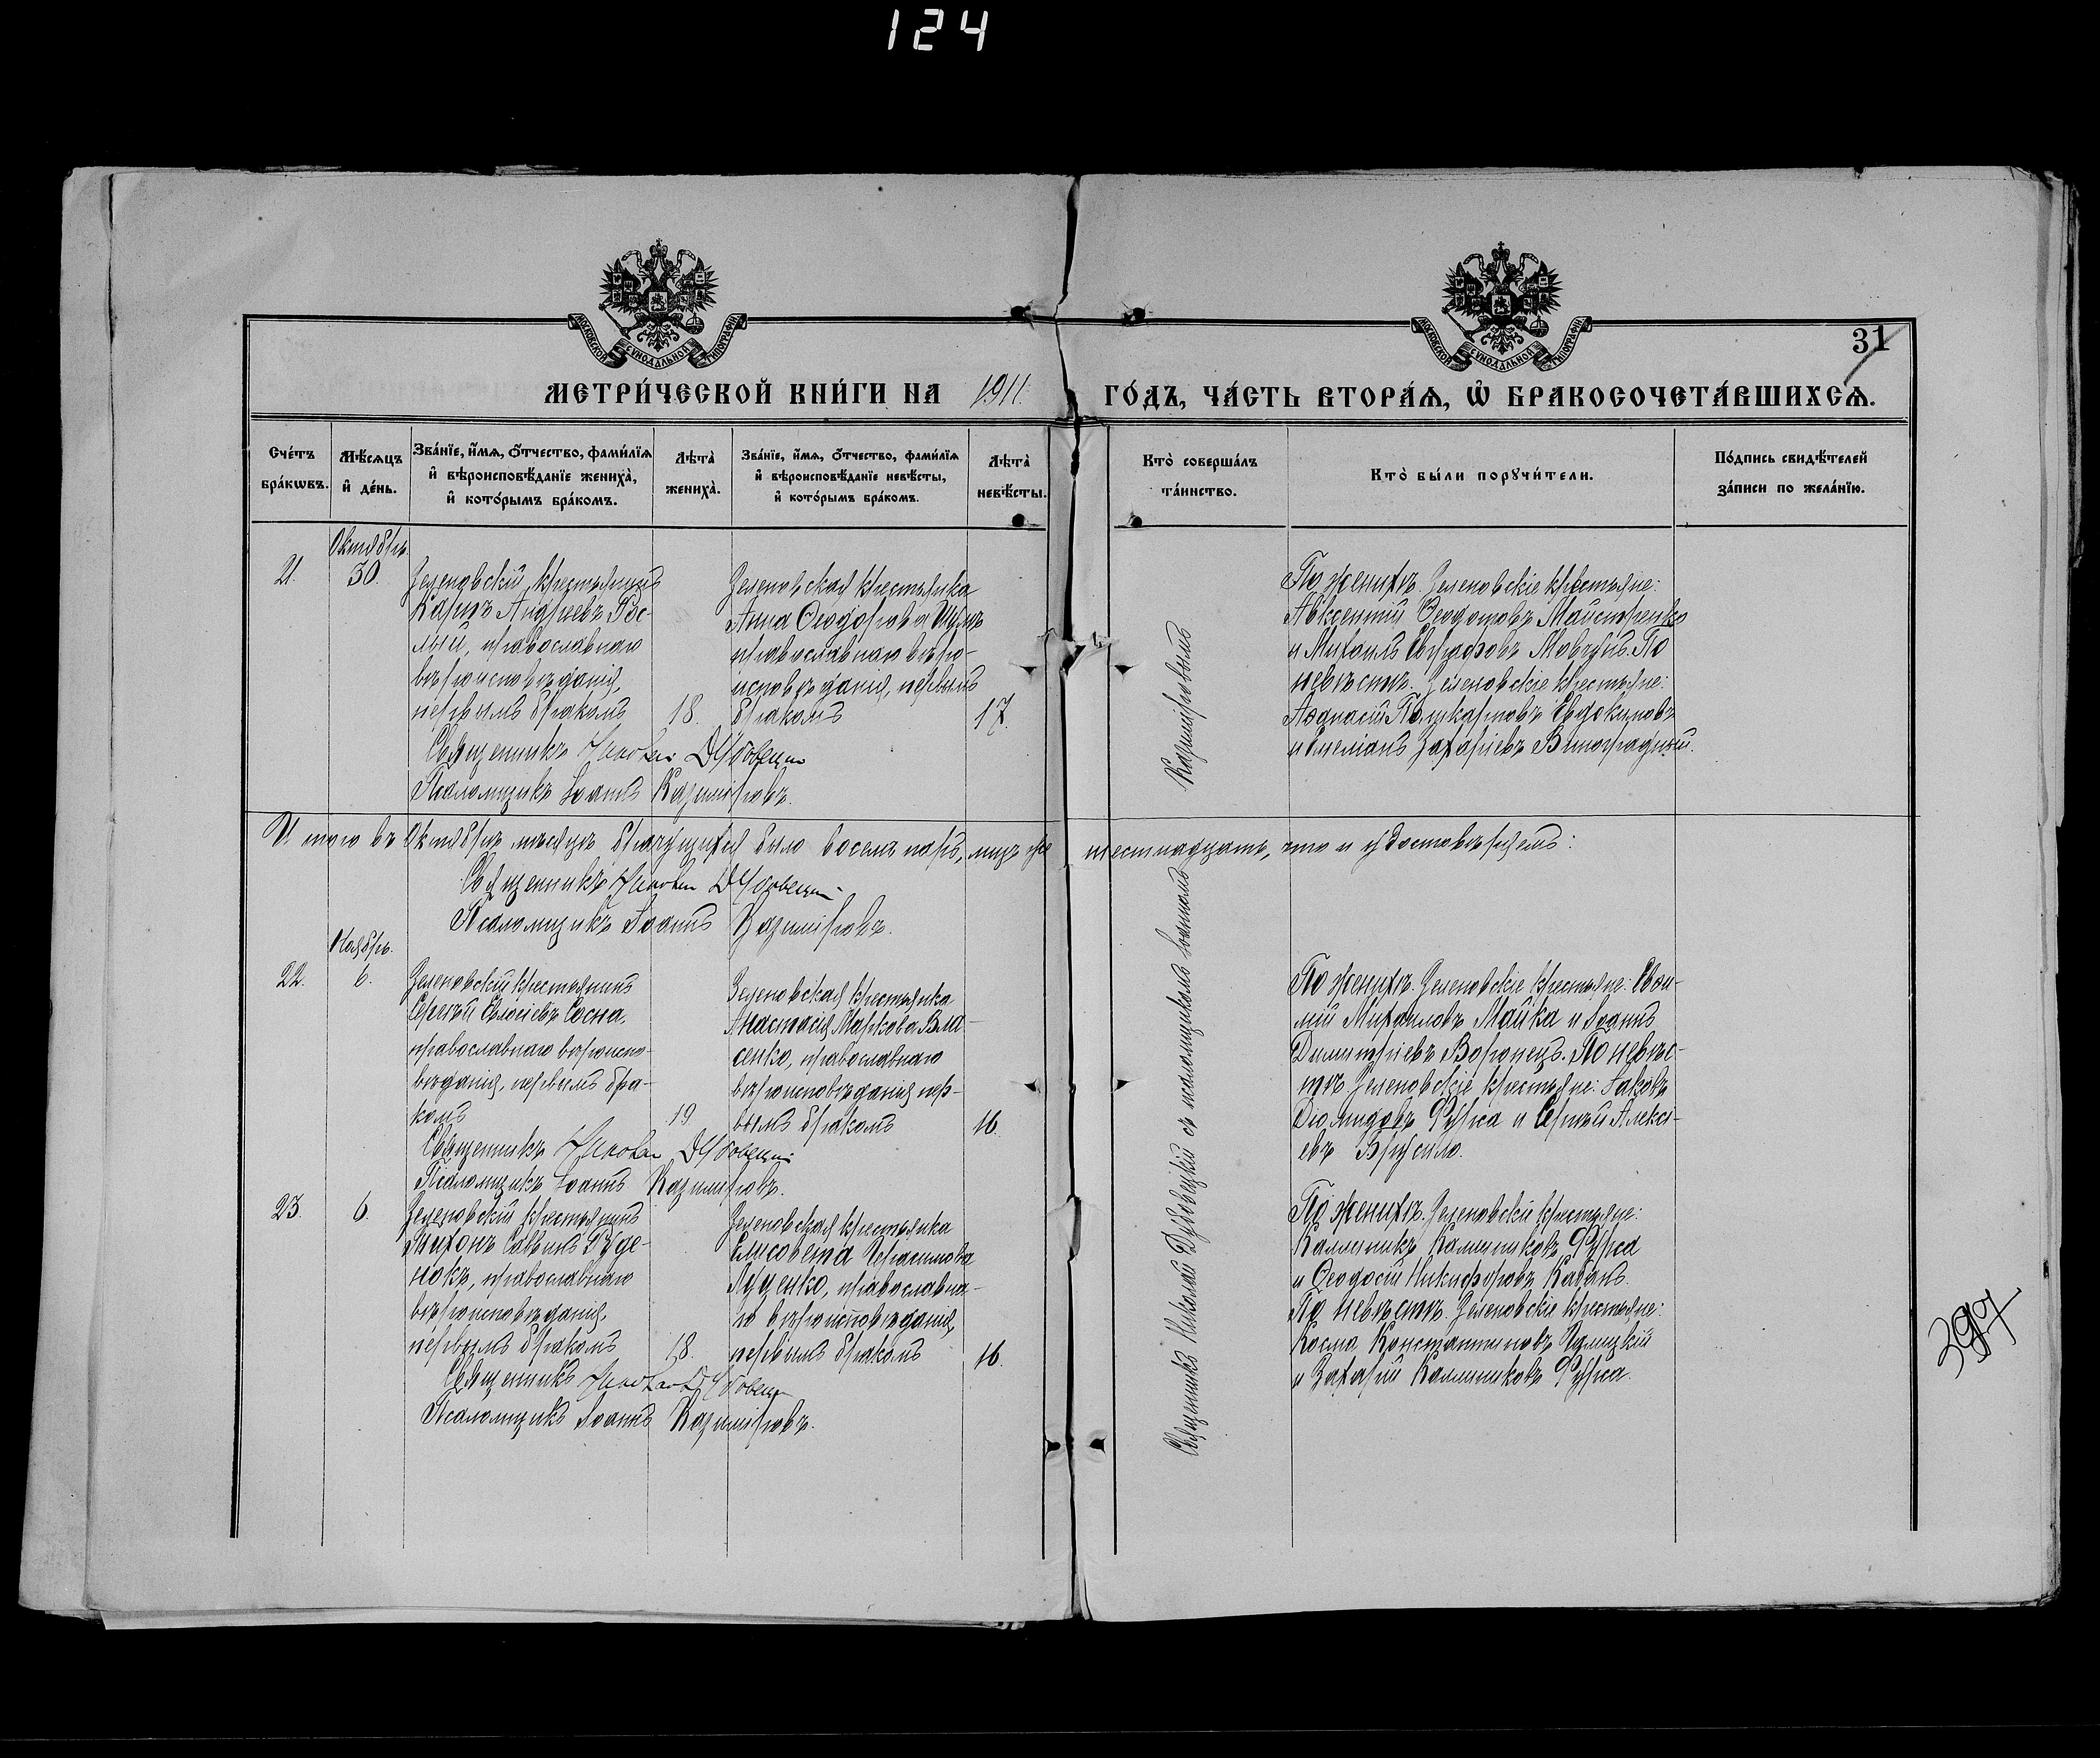 124
МОСКОВСКОЙ СѴНОДАЛЬНОЙ ТИПОГРАФІИ
МОСКОВСКОЙ СѴНОДАЛЬНОЙ ТИПОГРАФІИ
31
МЕТРИ́ЧЕСКОЙ КНИ́ГИ НА 1911
ГО́ДЪ, ЧА́СТЬ ВТОРА́Ѧ, Ѡ҆ БРАКОСОЧЕТА́ВШИХСѦ.
Сче́тъ
бра́кѡвъ.
Мѣ́сѧцъ
и҆ де́нь.
Зва́нїе, и҆́мѧ, ѻ҆́тчество, фами́лїѧ
и҆ вѣроисповѣ́данїе жениха̀,
и҆ кото́рымъ бра́комъ.
Лѣта̀
жениха̀.
Зва́нїе, и҆́мѧ, ѻ҆́тчество, фами́лїѧ
и҆ вѣроисповѣ́данїе невѣ́сты,
и҆ кото́рымъ бра́комъ.
Лѣта̀
невѣ́сты.
Кто̀ соверша́лъ
та́инство.
Кто̀ бы́ли порꙋчи́тели.
По́дпись свидѣ́телей
за́писи по жела́нїю.
Октябрь.
21.
30.
Зеленовскій крестьянинъ
Карпъ Андреевъ
лый, православнаго
вѣроисповѣданія,
первымъ бракомъ
18.
Зеленовская крестьянка
Анна Ѳеодорова
православнаго вѣро-
исповѣданія, первымъ
бракомъ
17.
По женихѣ. Зеленовскіе крестьяне:
Авксентій Ѳеодотовъ Майстренко
и Михаилъ Евграфовъ Мовчунъ. По
невѣстѣ. Зеленовскіе крестьяне:
Аѳанасій Поликарповъ Евдокимовъ
и Емеліанъ Захаріевъ Виноградный.
Священникъ Николай Дубовецкій
Псаломщикъ Іоаннъ Казиміровъ.
Итого въ Октябрѣ мѣсяцѣ брачущихся было восемь паръ, лицъ же шестнадцать, что и удостовѣряемъ:
Священникъ Николай Дубовецкій
Псаломщикъ Іоаннъ Казиміровъ.
Ноябрь.
22.
6.
Зеленовскій крестьянинъ
Сергѣй Сосна,
православнаго вѣроиспо-
вѣданія, первымъ бра-
комъ
19
Зеленовская крестьянка
Анастасія Маркова Вла-
сенко, православнаго
вѣроисповѣданія пер-
вымъ бракомъ
16.
По женихѣ. Зеленовскіе крестьяне: Евѳи-
мій Михаиловъ Майка и Іоаннъ
Димитріевъ Воронецъ. По невѣс-
тѣ Зеленовскіе крестьяне: Іаковъ
Діомидовъ Фурса и Сергѣй Алексі-
евъ Брусило.
Священникъ Николай Дубовецкій
Псаломщикъ Іоаннъ Казиміровъ.
23.
6.
Зеленовскій крестьянинъ
Тихонъ Саввинъ Руде-
нокъ, православнаго
вѣроисповѣданія,
первымъ бракомъ
18.
Зеленовская крестьянка
Елисавета Герасимова
Луценко, православна-
го вѣроисповѣданія,
первымъ бракомъ
16.
По женихѣ. Зеленовскій крестьяне:
Каллиникъ Каллиниковъ Фурса
и Ѳеодосій Никифоровъ Кабанъ.
По невѣстѣ. Зеленовскіе крестьяне:
Косма Константиновъ
и Захарій Каллиниковъ Фурса.
Священникъ Николай Дубовецкій
Псаломщикъ Іоаннъ Казиміровъ.
Священникъ Николай Дубовецкій съ псаломщикомъ Іоанномъ Казиміровымъ
397